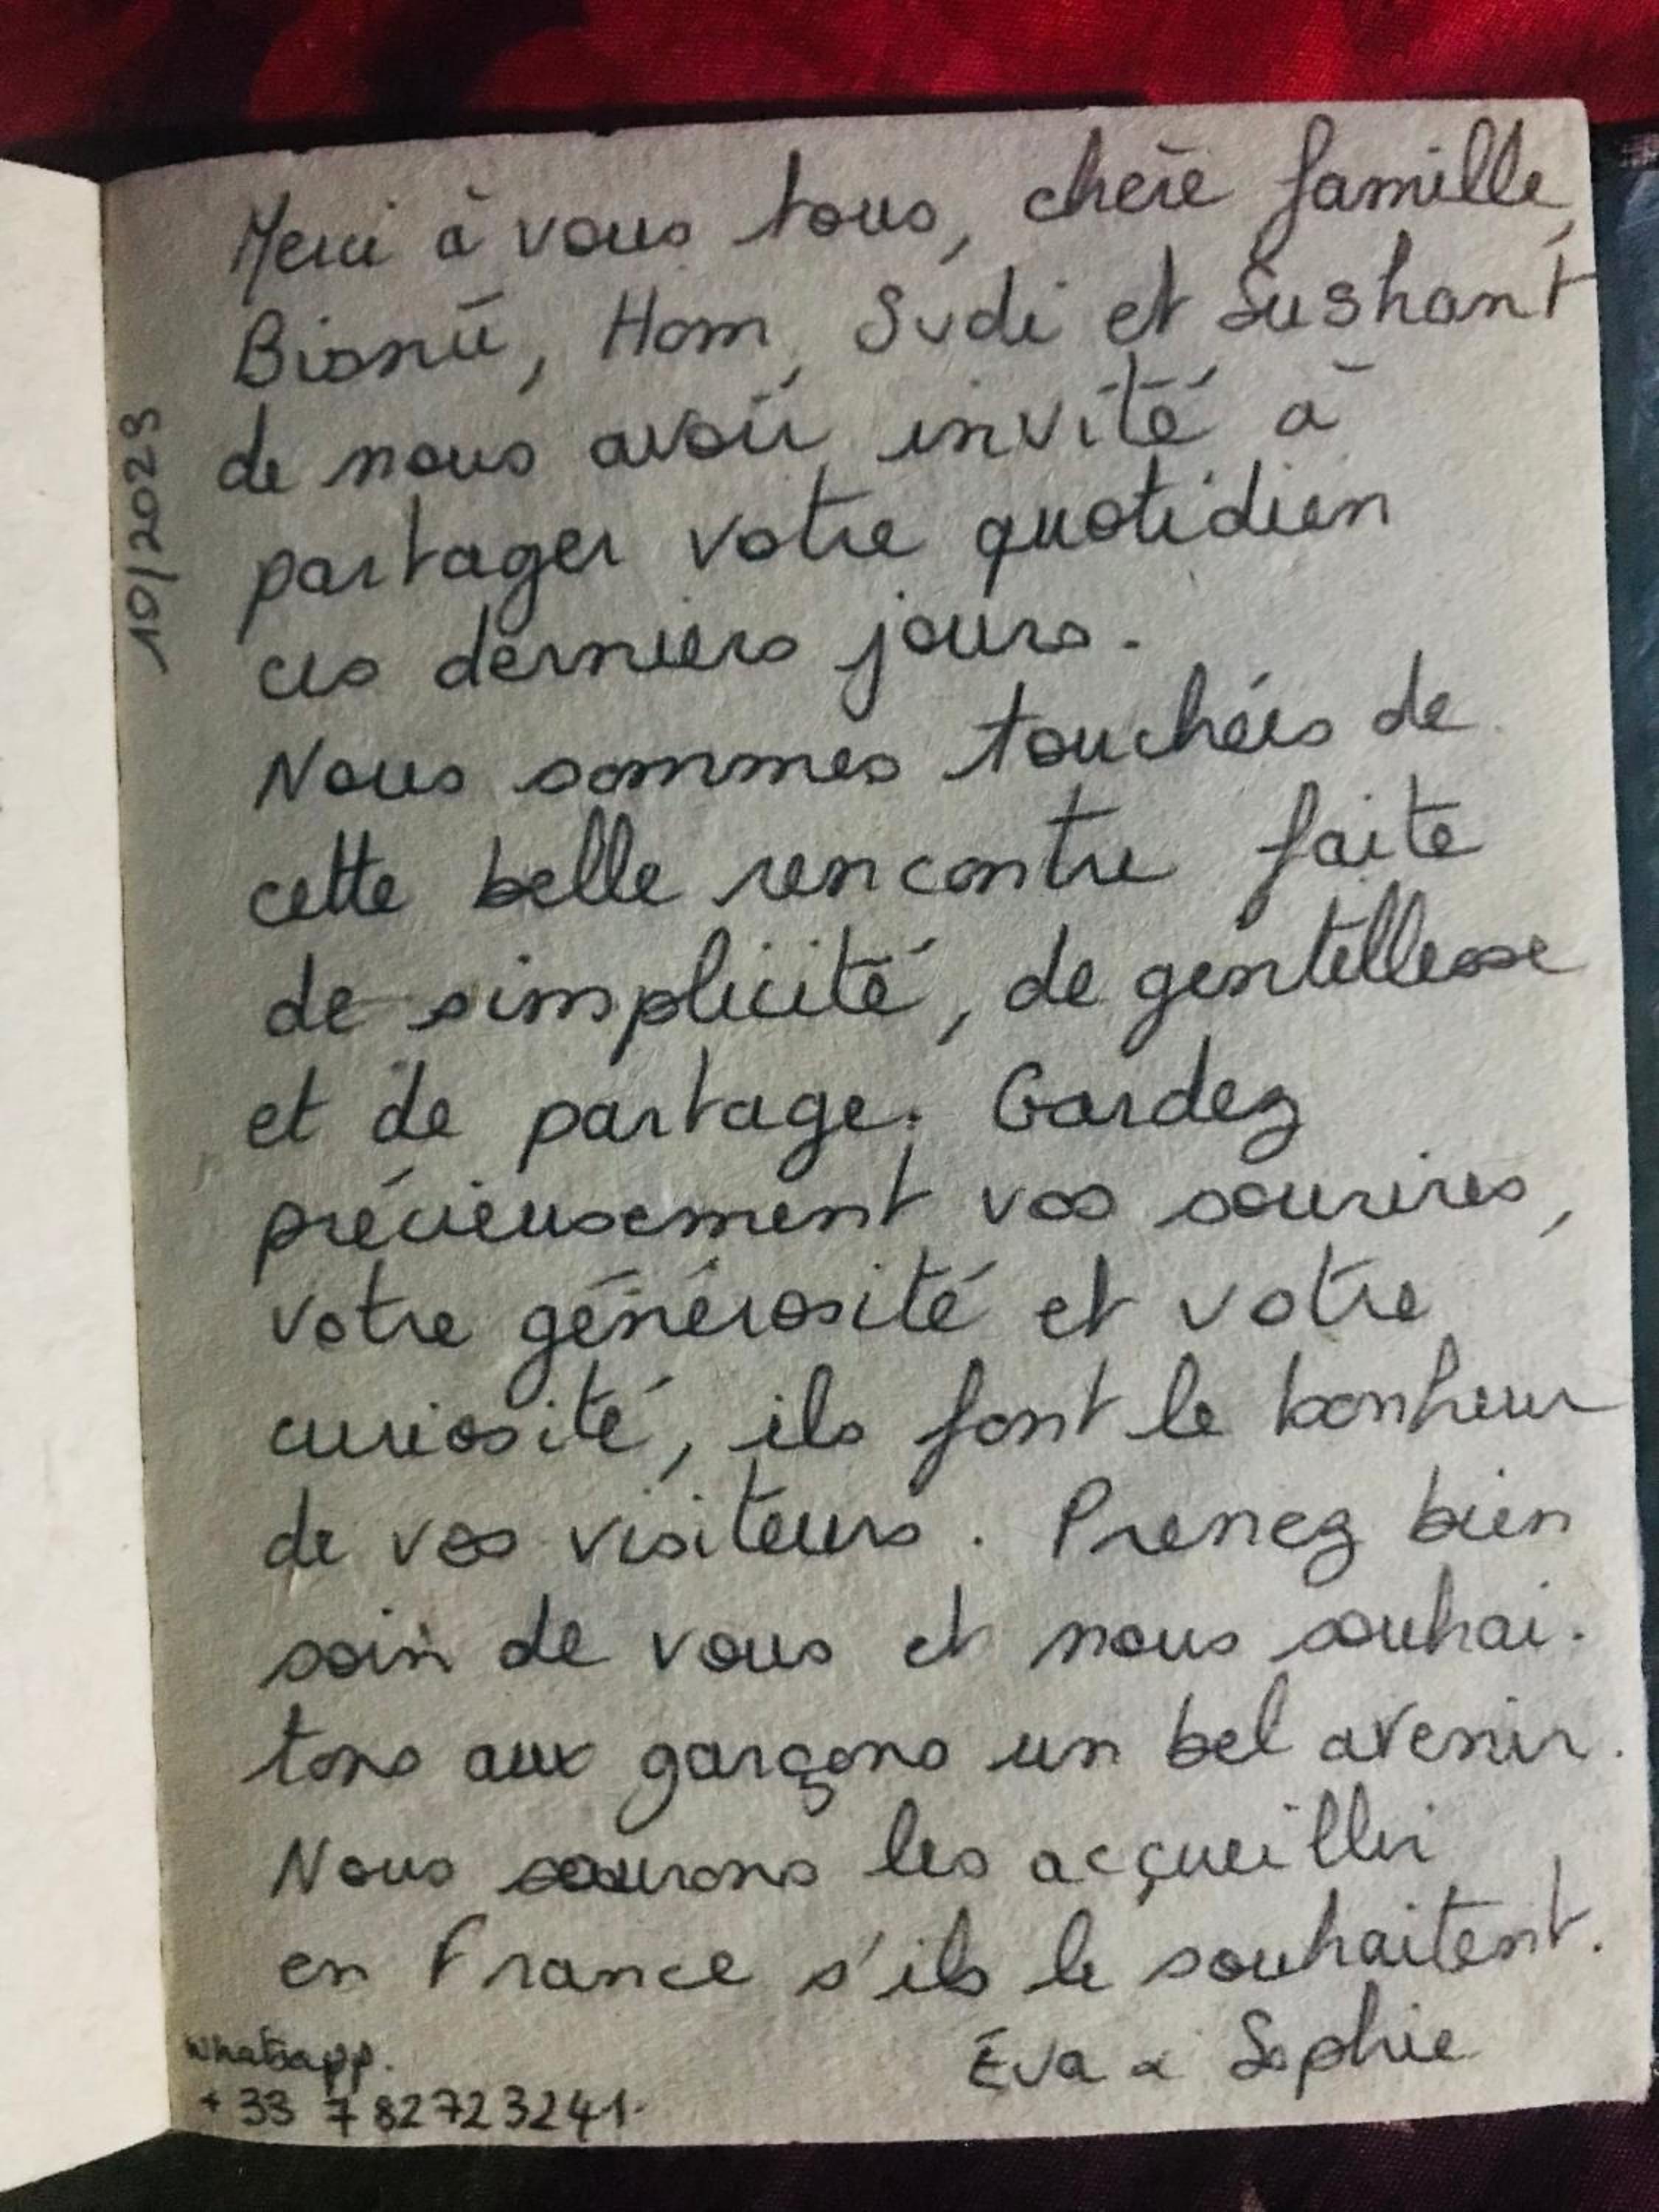 Merci à vous tous, chère famille,
Bisnù, Hom, Sudi et Sushant
de nous avoir invité à
partager votre quotidien
ces derniers jours.
Nous sommes touchées de
cette belle rencontre faite
de simplicité, de gentillesse
et de partage. Gardez
précieusement vos sourires,
votre générosité et votre
curiosité, ils font le bonheur
de vos visiteurs. Prenez bien
soin de vous et nous souhai-
tons aux garçons un bel avenir.
Nous saurons les acçueillir
en France s'ils le souhaitent.
Éva & Sophie
Whatsapp.
+33 782723241.
10/2023